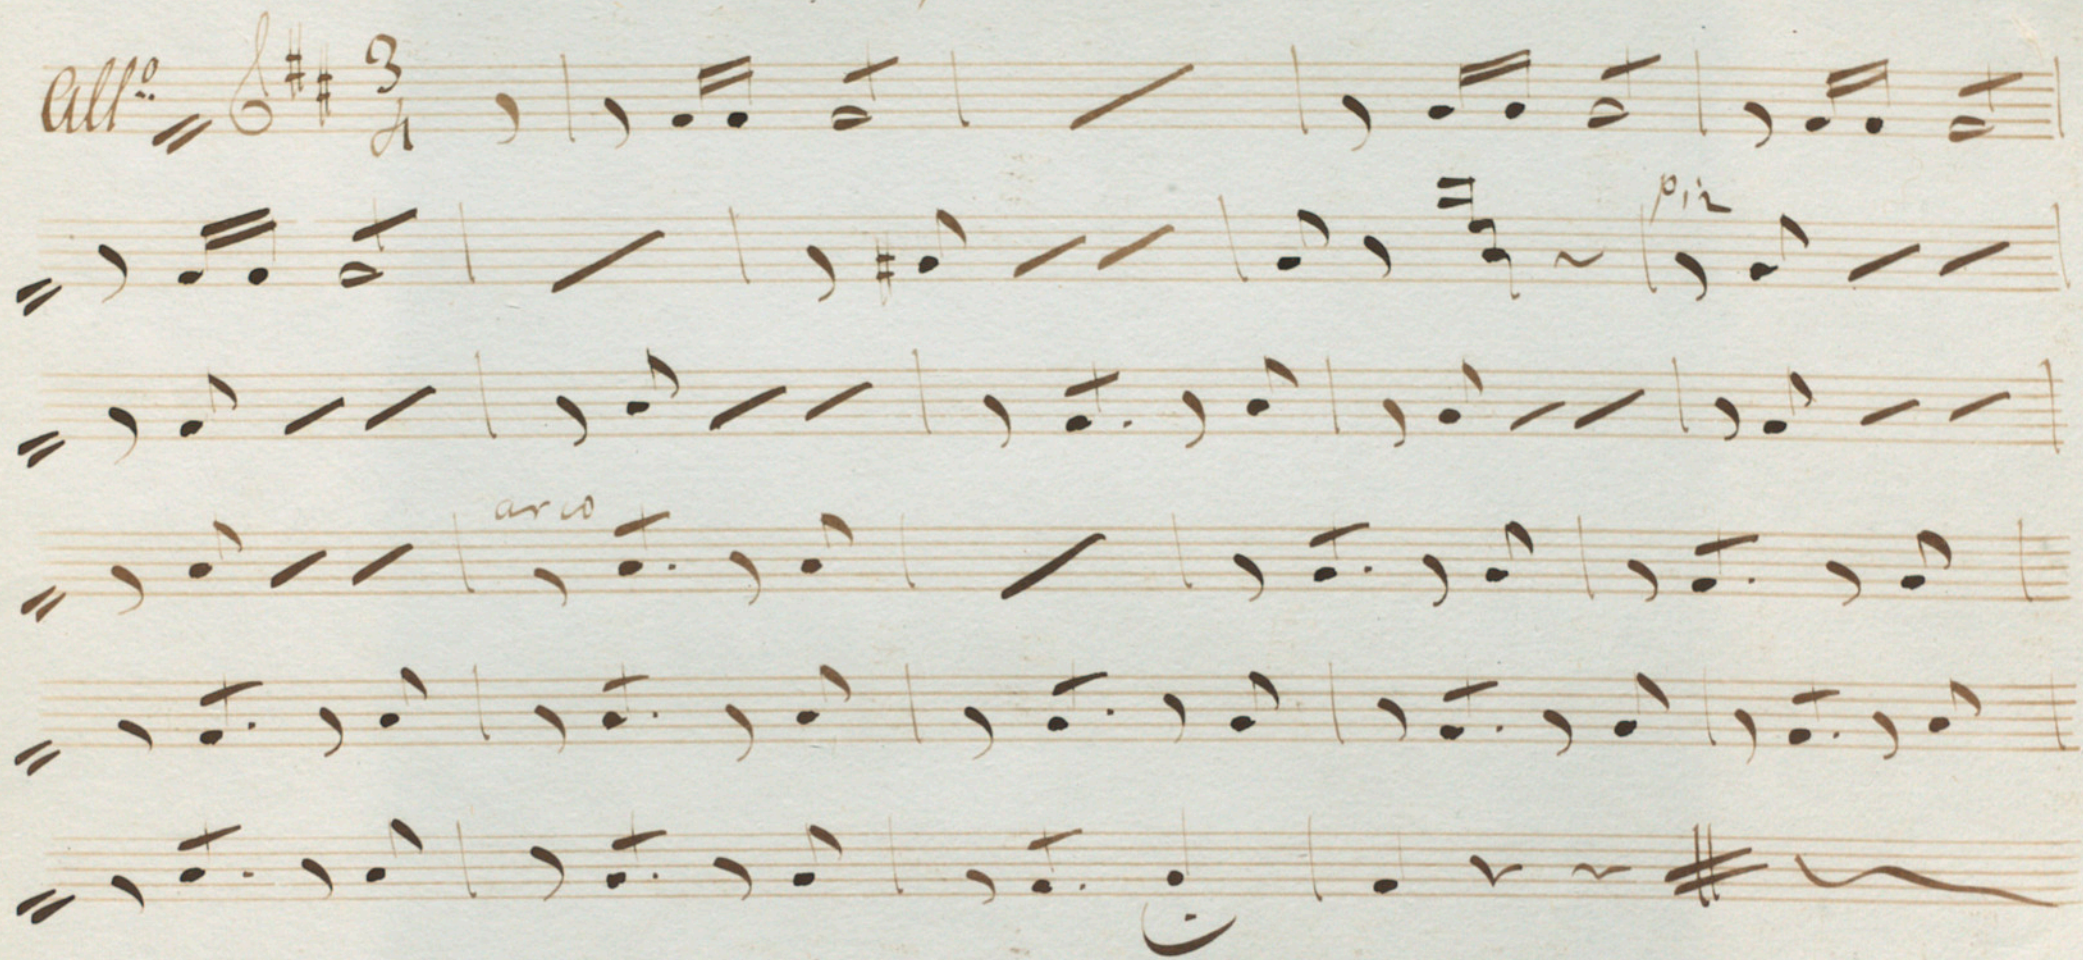 All.º
3
4
piz
arco